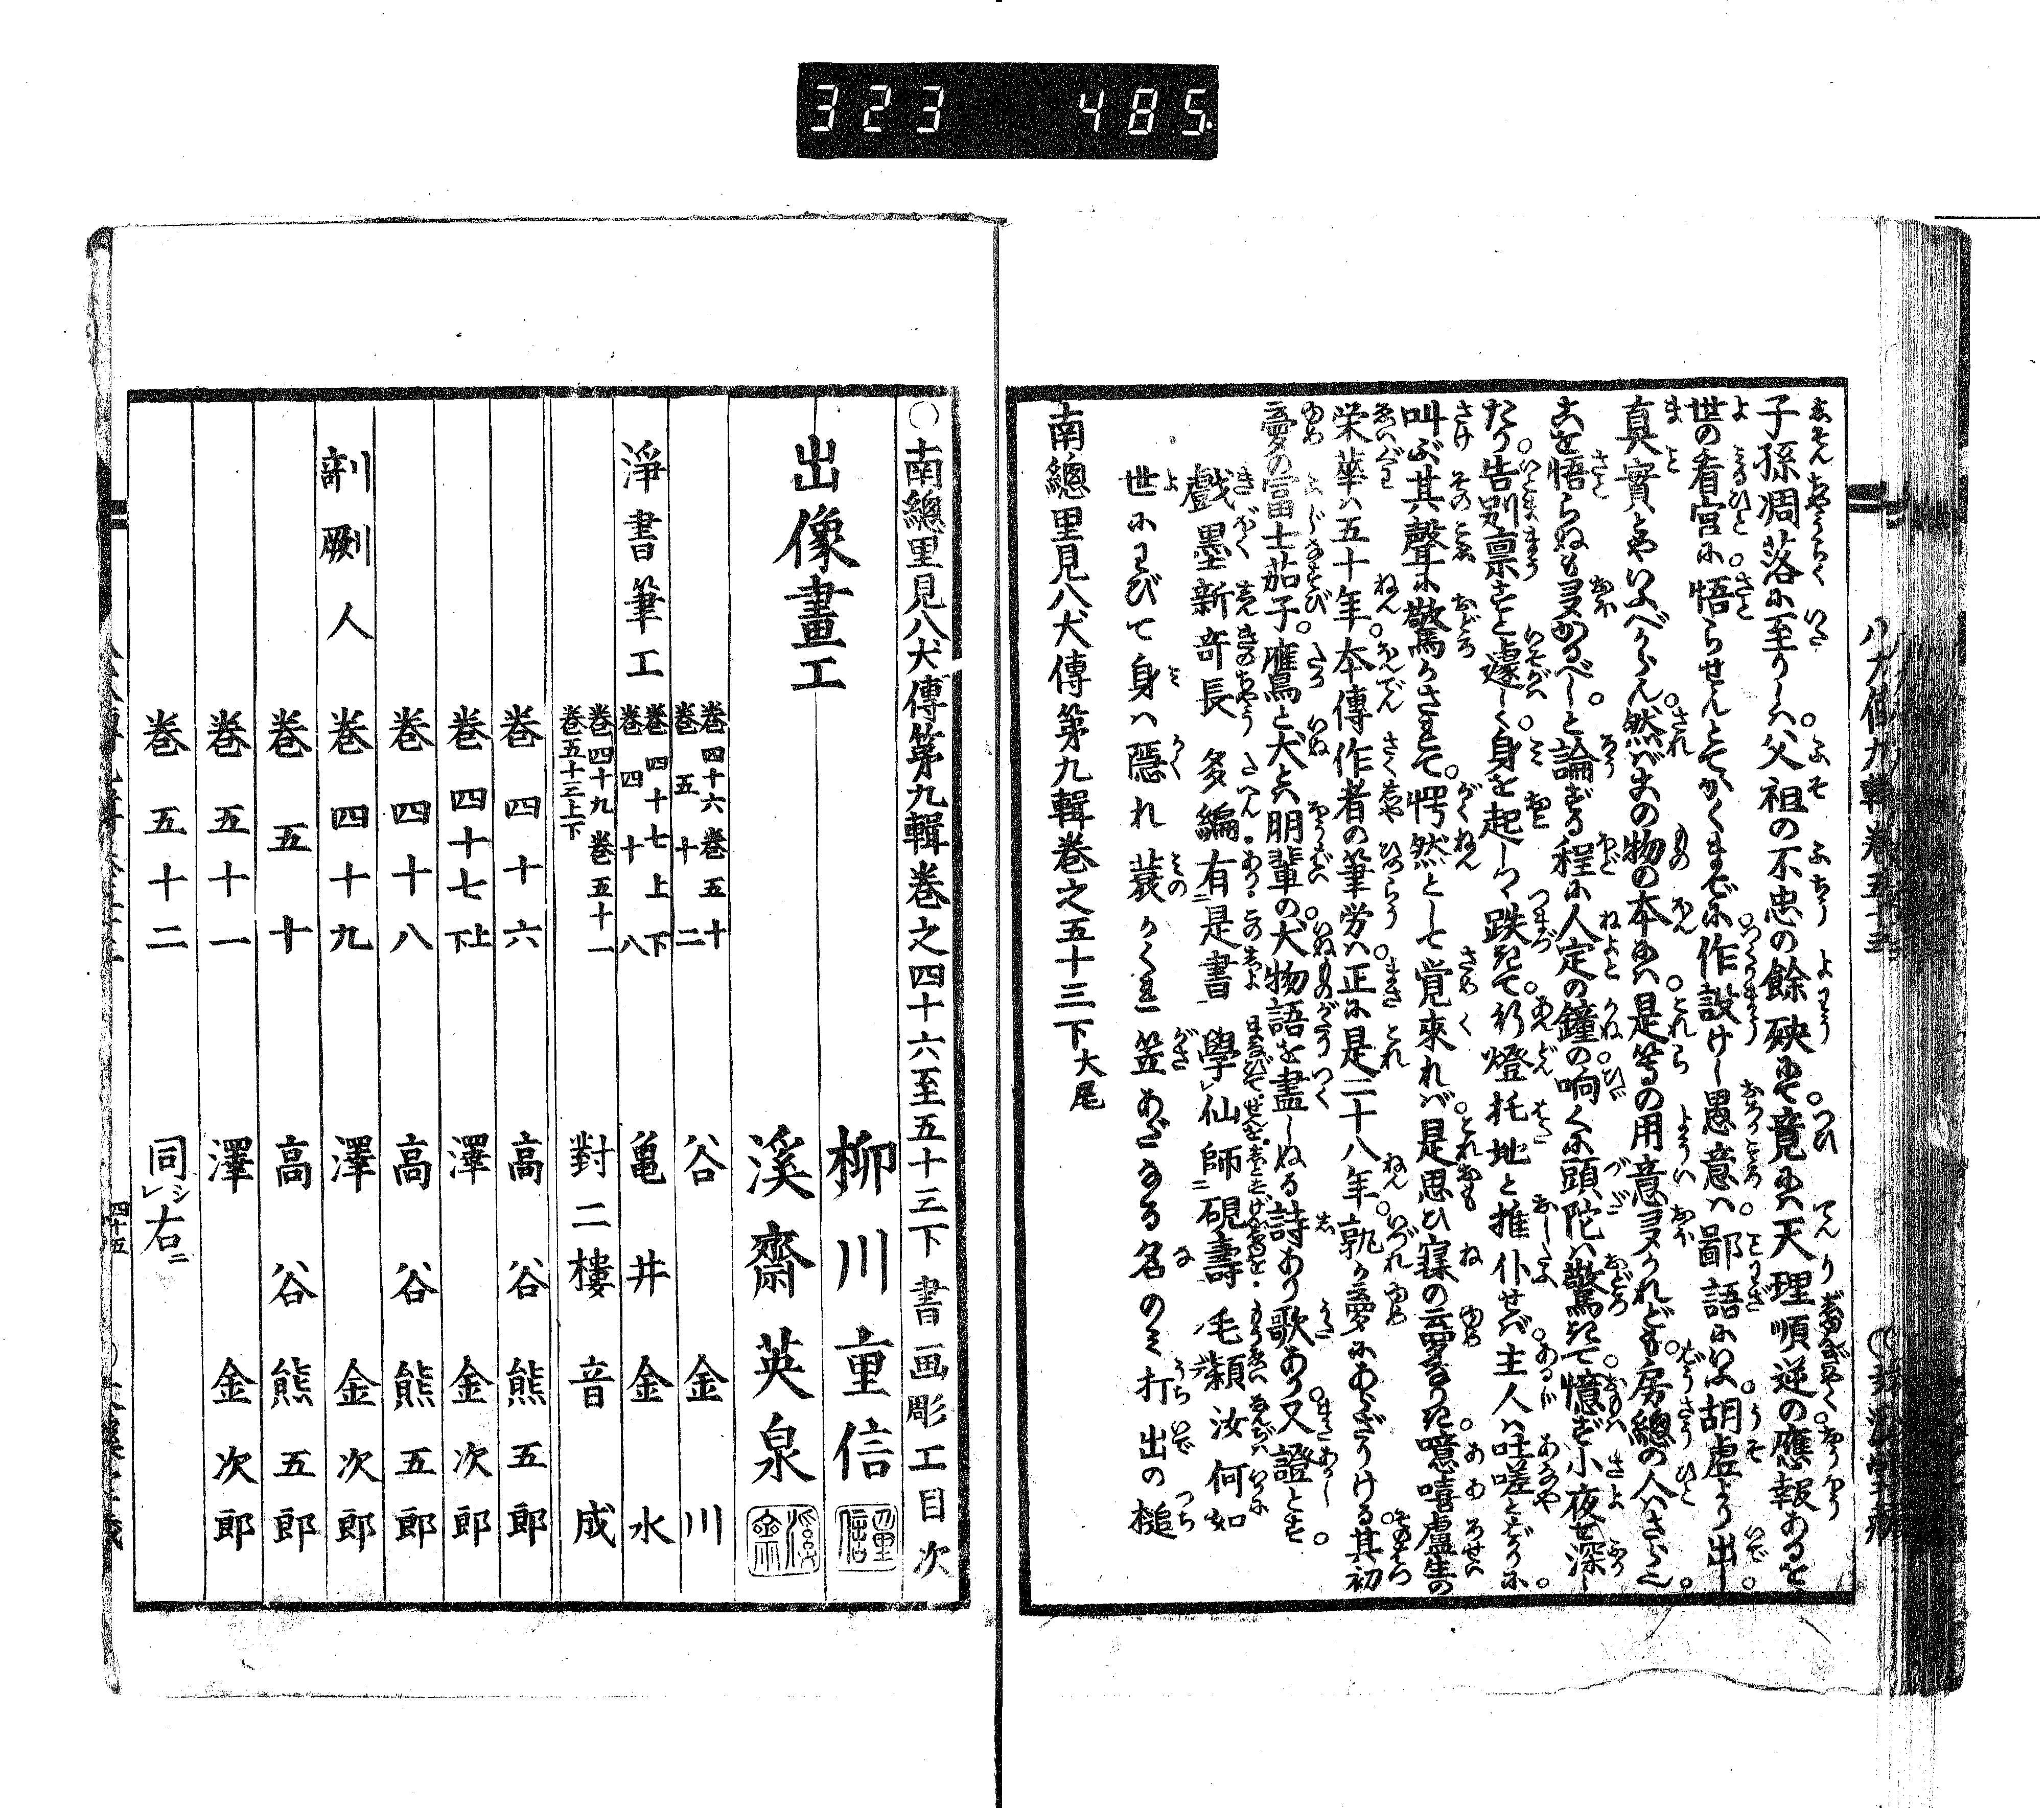 323 485
子孫凋落に至りしは父祖の不忠の餘殃にて竟には天理順逆の應報あるを
世の看官に悟らせんとてかくまでに作設けし愚意は鄙語にいふ胡虚より出し
真實とやいふべからん然ばこの物の本には是等の用意多かれども房總の人はさら也
こを悟らぬも多かるべしと論ずる程に人定の鐘の响くに頭陀は驚きて憶ず小夜を深し
たり告別稟すと遽しく身を起しつゝ跌きて行燈扥地と推仆せば主人は吐嗟とばかりに
叫ぶ其聲に驚かされて愕然として覚來れば是思ひ寐の夢なりき噫嘻盧生の
栄華は五十年本傳作者の筆労は正に是二十八年孰か夢にあらざりける其初
夢の富士茄子鷹と犬とは朋輩の犬物語を盡しぬる詩あり歌あり又證とす
戲墨新竒長多編有是書學仙師硯壽毛穎汝何如
世にわびて身は隠れ蓑かくれ笠あだなる名のミ打出の槌
南總里見八犬傳第九輯巻之五十三下大尾
○南總里見八犬傳第九輯巻之四十六至五十三下書画彫工目次
出像畫工
柳川重信
溪齋英泉
淨書筆工
巻四十六巻五十
巻五十二
谷金川
巻四十七上下
巻四十八
亀井金水
巻四十九巻五十一
巻五十三上下
對二樓音成
剞劂人
巻四十六 高谷熊五郎
巻四十七上下 澤金次郎
巻四十八 高谷熊五郎
巻四十九 澤金次郎
巻五十 高谷熊五郎
巻五十一 澤金次郎
巻五十二 同シ右ニ
四十五